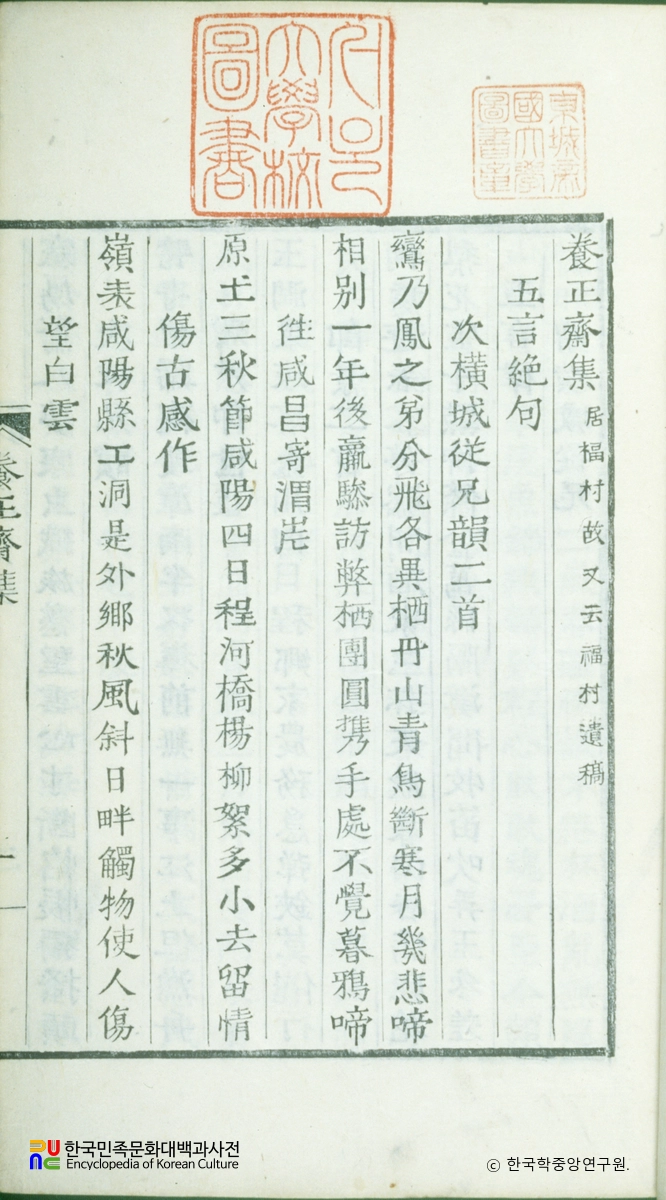 養正齋集 居福村故又云福村遺稿
五言絶句
次橫城從兄韻二首
鸞乃鳳之弟分飛各異栖丹山靑鳥斷寒月幾悲啼
相別一年後羸驂訪弊栖團圓携手處不覺暮鴉啼
徃咸昌寄渭岸
原土三秋節咸陽四日程河橋楊柳絮多小去留情
傷古感作
嶺表咸陽縣工洞是外鄉秋風斜日畔觸物使人傷
望白雲
養正齋集
一
大學校
圖書
國大學
圖書
한국민족문화대백과사전
Encyclopedia of Korean Culture
ⓒ 한국학중앙연구원.